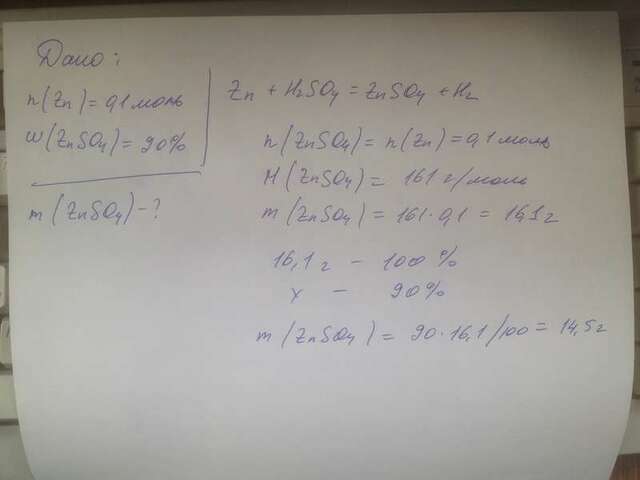 Дано:
n(Zn) = 0,1 моль
w(ZnSO4) = 90%
m(ZnSO4) - ?
Zn + H2SO4 = ZnSO4 + H2
n(ZnSO4) = n(Zn) = 0,1 моль
M(ZnSO4) = 161 г/моль
m(ZnSO4) = 161·0,1 = 16,1 г
16,1 г - 100%
x - 90%
m(ZnSO4) = 90·16,1/100 = 14,5 г